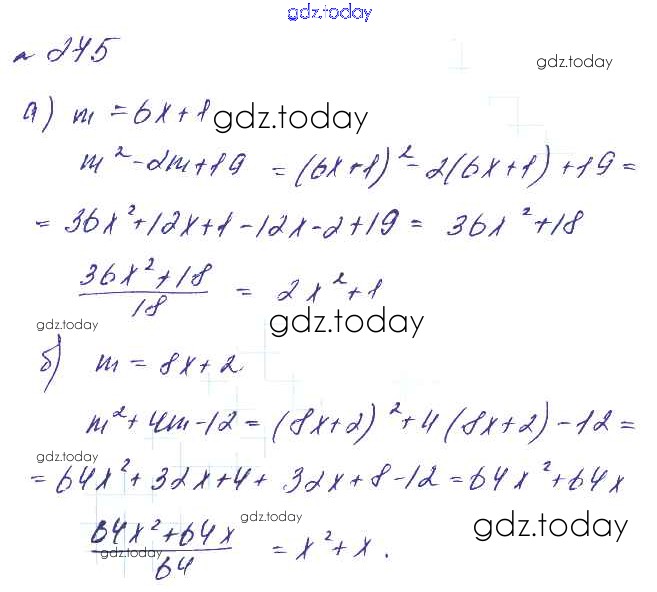 gdz.today
№ 245
gdz.today
а) m = 6x+1
gdz.today
m²-2m+19 = (6x+1)²-2(6x+1)+19=
= 36x²+12x+1-12x-2+19 = 36x²+18
(36x²+18)/18 = 2x²+1
gdz.today
gdz.today
б) m = 8x+2
m²+4m-12 = (8x+2)²+4(8x+2)-12=
gdz.today
= 64x²+32x+4+32x+8-12=64x²+64x
gdz.today
gdz.today
(64x²+64x)/64 = x²+x.
gdz.today